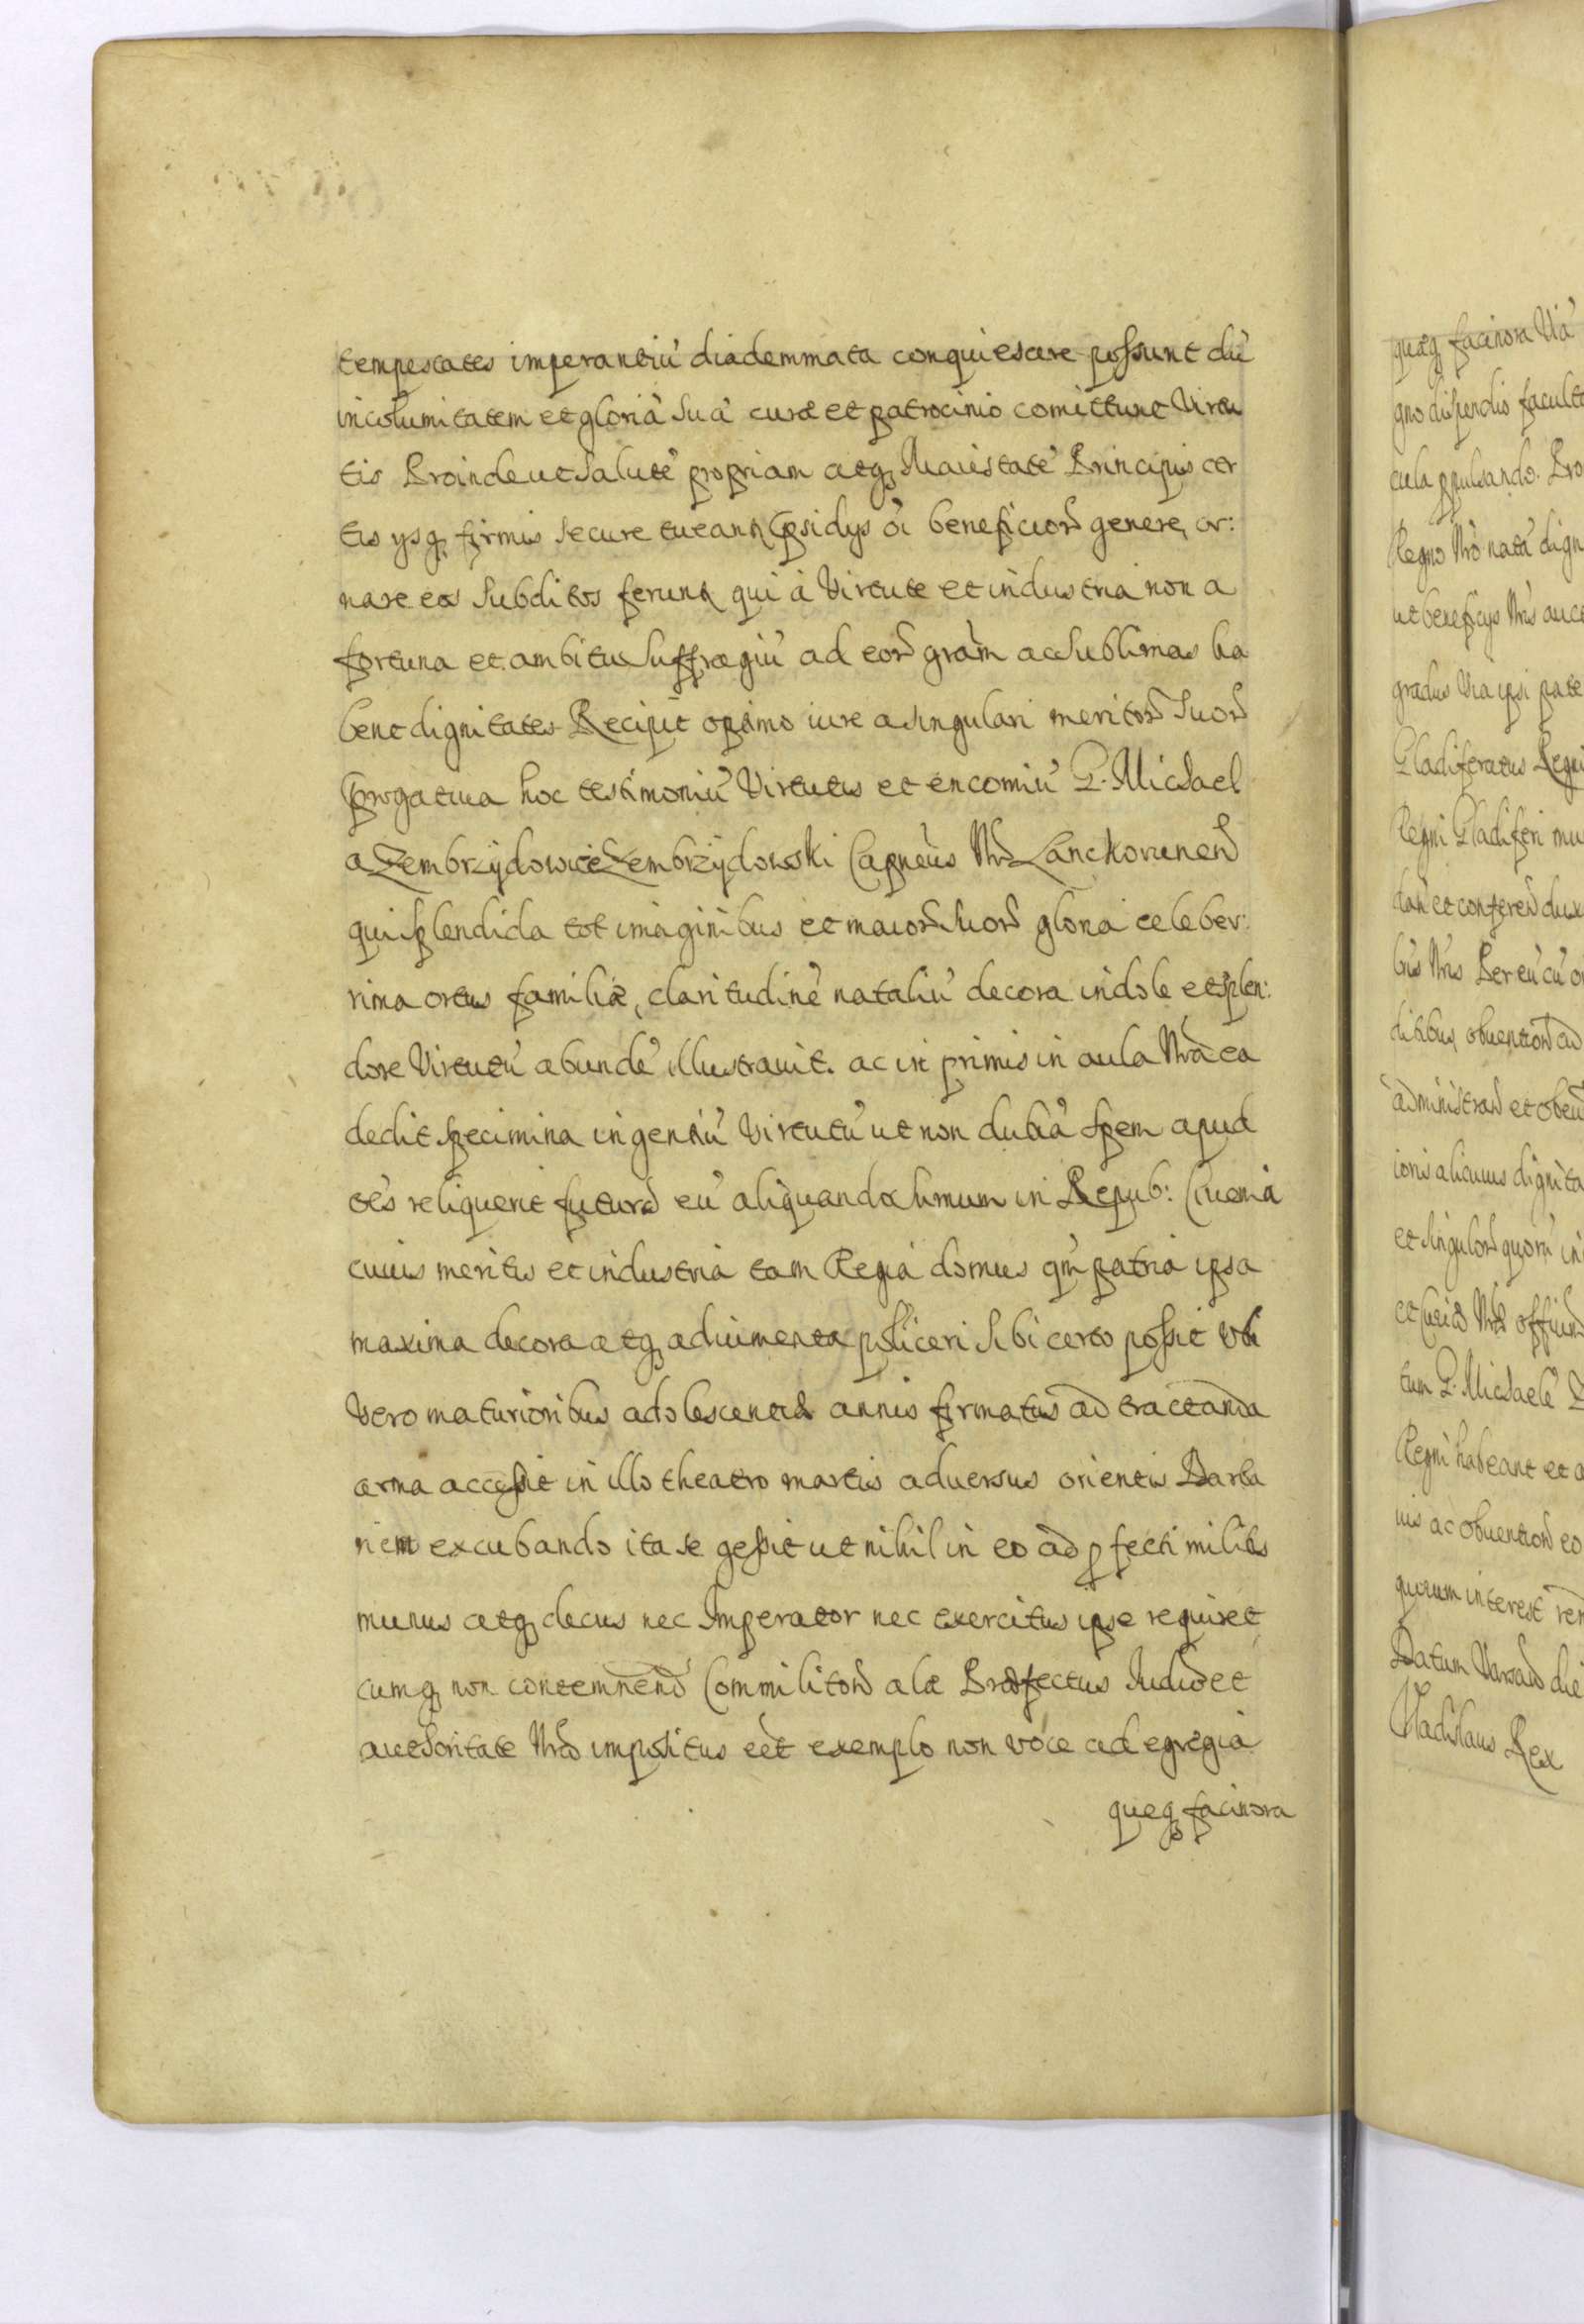 tempestates imperantiũ diademmata conquiescere possunt dũ
incolumitatem et gloriã suã curæ et patrocinio comittunt Virtu
tis Proinde ut salutẽ propriam atq Maiestatẽ Principis cer
tis ysq firmis secure tueant Psidys õi beneficior genere, or:
nare eos subditos ferunt qui à Virtute et industria non a
fortuna et ambitus suffragiũ ad eor grãm ac sublimas ha
bent dignitates Recipit optimo iure a singulari meritor suor
Prrogatiua hoc testimoniũ Virtutis et encomiũ G. Michael
a Zembrzydowice Zembrzydowski Capneus Nr Lanckorunen
qui splendida tot imaginibus et maior suor gloria celeber:
rima ortus familiæ, claritudinẽ nataliũ decora indole et splen:
dore Virtutũ abundẽ illustrauit. ac in primis in aula Nra ea
dedit specimina ingentiũ Virtutũ ut non dubiã spem apud
oẽs reliquerit futur eũ aliquando summum in Repub: Ciuem
cuius meritis et industria tam Regia domus qm patria ipsa
maxima decora atq adiumenta polliceri sibi certo possit Vbi
Vero maturioribus adolescentiæ annis firmatus ad tractanda
arma accessit in illo theatro martis aduersus orientis Barba
riem excubando ita se gessit ut nihil in eo ad pfecti militis
munus atq decus nec Imperator nec exercitus ipse requiret
cumq non contemnend Commiliton alæ Præfectus Iudicio et
authoritate Nra impositus eẽt exemplo non voce ad egregia
queq facinora
quæq facinora Viã
gno dispendio faculta
cula ppulsando. Pro
Regno Nrõ natã dign
ut beneficys Nris auct
gradus Via ipsi pate
Gladiferatus Regni
Regni Gladiferi mu
dan et conferen dux
bus Nris Per eũ cũ o
ditibus obuention ad
administran et obeun
ionis alicuius dignita
et singulor quorũ in
tum G. Michaelẽ Z
Regni habeant et a
iuis ac obuention eo
quorum interest rem
Datum Varsaw die
Vladislaus Rex